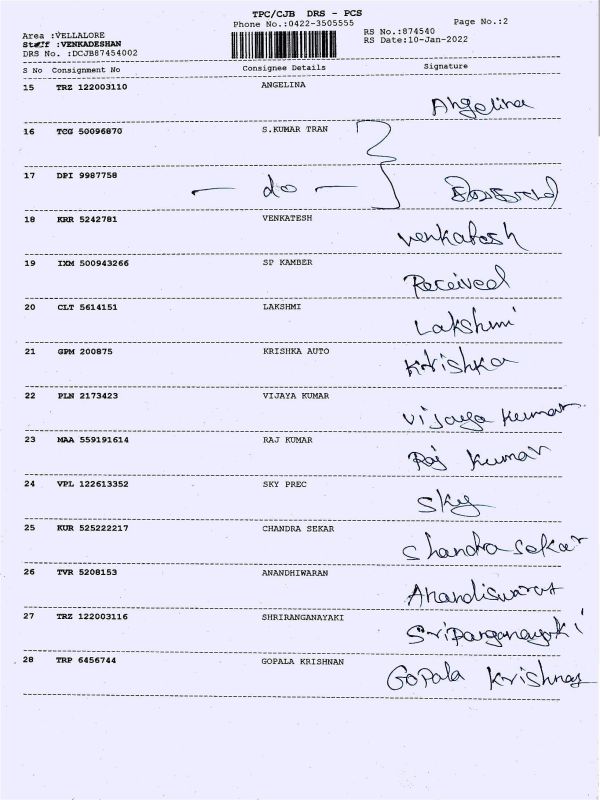 TPC/CJB DRS - PCS
Phone No.:0422-3505555 Page No.:2
Area :VELLALORE RS No.:874540
Staff :VENKADESHAN RS Date:10-Jan-2022
DRS No. :DCJB87454002
S No Consignment No Consignee Details Signature
15 TRZ 122003110 ANGELINA
Angelina
16 TCG 50096870 S.KUMAR TRAN
17 DPI 9987758
— do —
18 KRR 5242781 VENKATESH
Venkatesh
19 IXM 500943266 SP KAMBER
Received
20 CLT 5614151 LAKSHMI
Lakshmi
21 GPM 200875 KRISHKA AUTO
Krishka
22 PLN 2173423 VIJAYA KUMAR
Vijaya Kumar
23 MAA 559191614 RAJ KUMAR
Raj Kumar
24 VPL 122613352 SKY PREC
Sky
25 KUR 525222217 CHANDRA SEKAR
Chandra Sekar
26 TVR 5208153 ANANDHIWARAN
27 TRZ 122003116 SHRIRANGANAYAKI
28 TRP 6456744 GOPALA KRISHNAN
Gopala Krishnan